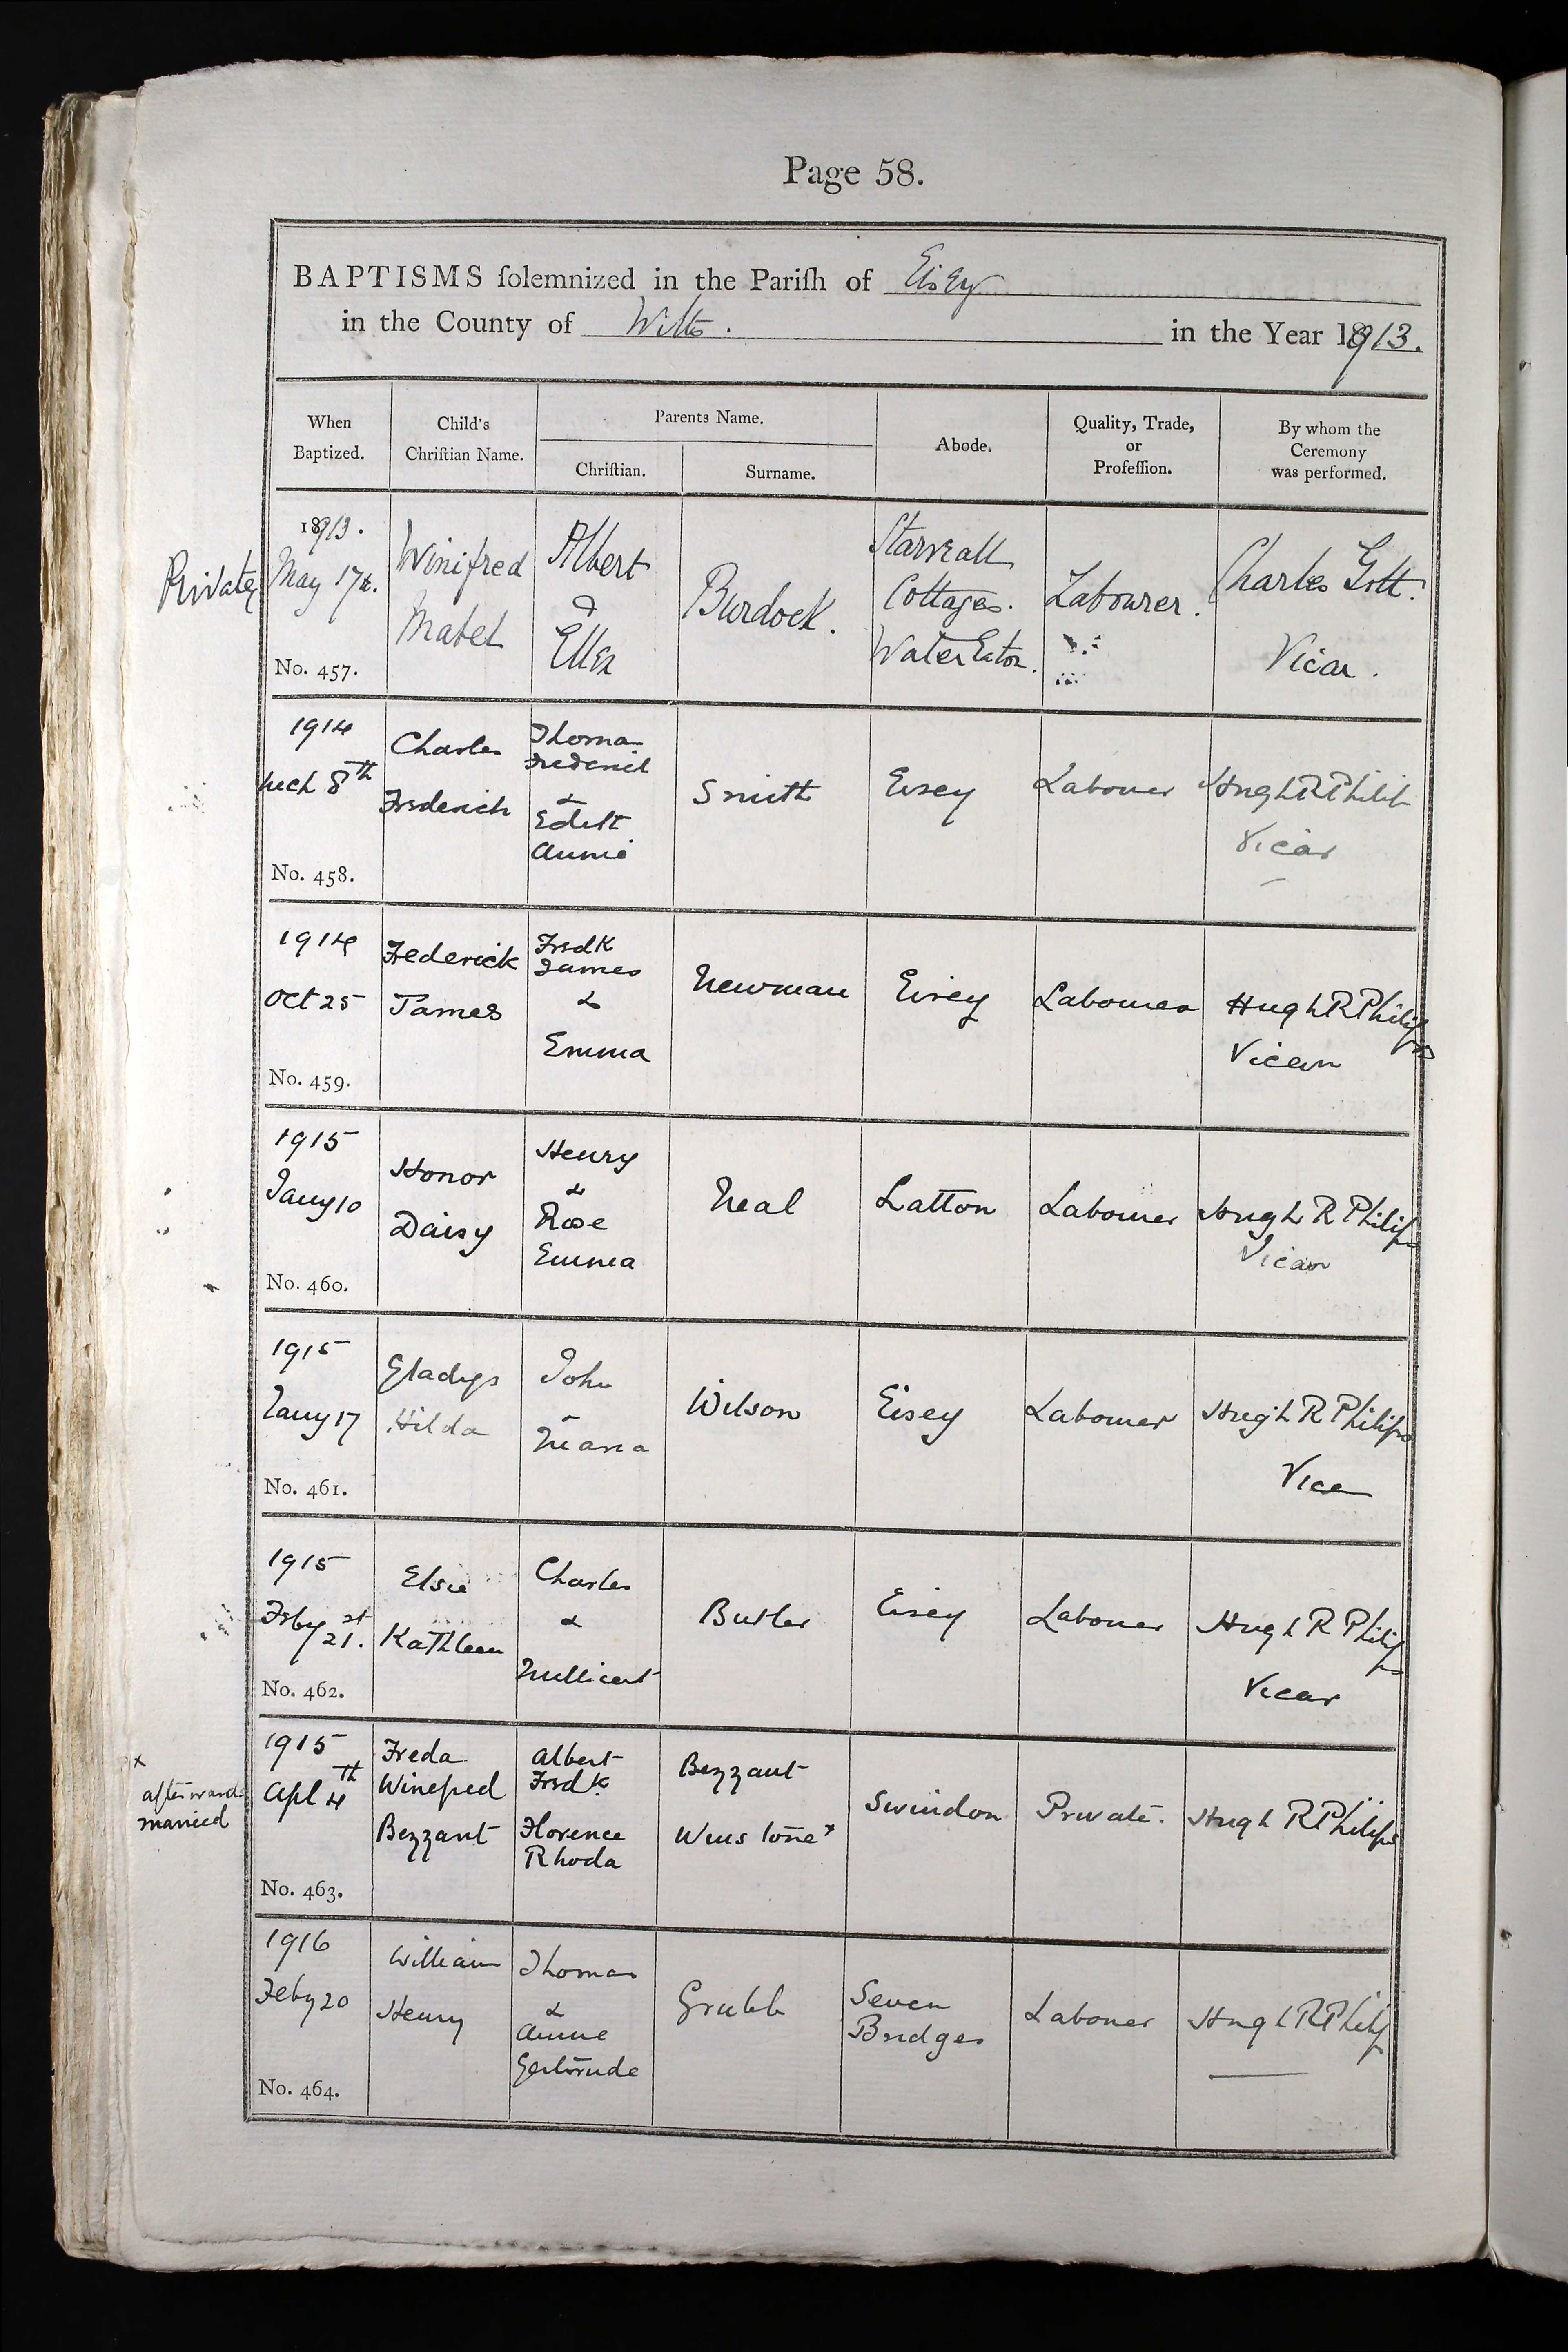 Page 58.
BAPTISMS ſolemnized in the Pariſh of Eisey
in the County of Wilts. in the Year 1913.
When Baptized.
Child's Chriſtian Name.
Parents Name.
Chriſtian.
Surname.
Abode.
Quality, Trade, or Profeſſion.
By whom the Ceremony was performed.
Private
1913.
May 17th.
No. 457.
Winifred
Mabel
Albert
&
Ellen
Burdock.
Starveall
Cottages.
Water Eaton.
Labourer.
Charles Gott.
Vicar.
1914
Mch 8th
No. 458.
Charles
Frederick
Thomas
Frederick
&
Edith
Annie
Smith
Eisey
Labourer
Hugh R Philips
Vicar
1914
Oct 25
No. 459.
Frederick
James
Fredk
James
&
Emma
Newman
Eisey
Labourer
Hugh R Philips
Vicar
1915
Jany 10
No. 460.
Honor
Daisy
Henry
&
Rose
Emma
Neal
Latton
Labourer
Hugh R Philips
Vicar
1915
Jany 17
No. 461.
Gladys
Hilda
John
Maria
Wilson
Eisey
Labourer
Hugh R Philips
Vicar
1915
Feby 21st.
No. 462.
Elsie
Kathleen
Charles
&
Millicent
Butler
Eisey
Labourer
Hugh R Philips
Vicar
x
afterwards
married
1915
Apl 4th
No. 463.
Freda
Winefred
Bezzant
Albert
Fredk.
Florence
Rhoda
Bezzant
Winstone x
Swindon
Private.
Hugh R Philips
1916
Feby 20
No. 464.
William
Henry
Thomas
&
Annie
Gertrude
Grubb
Seven
Bridges
Labourer
Hugh R Philips